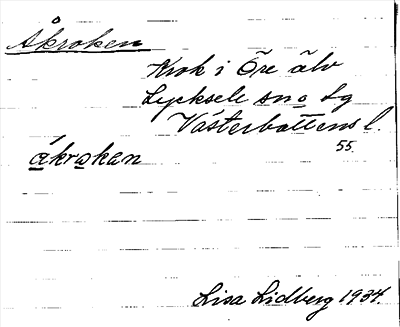 Åkroken
Krok i Öre älv
Lycksele sn o lg
Västerbottens l.
55.
åkrokan
Lisa Lidberg 1934.